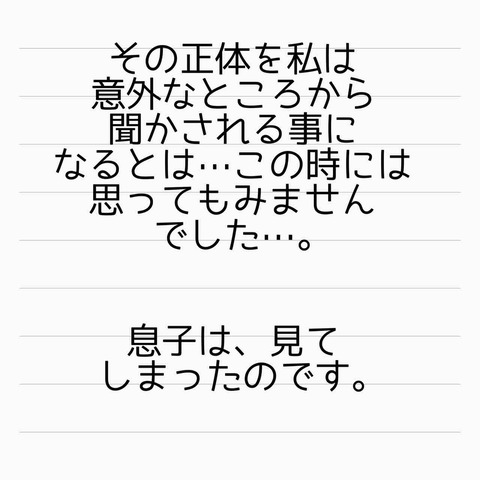 その正体を私は
意外なところから
聞かされる事に
なるとは…この時には
思ってもみません
でした…。
息子は、見て
しまったのです。